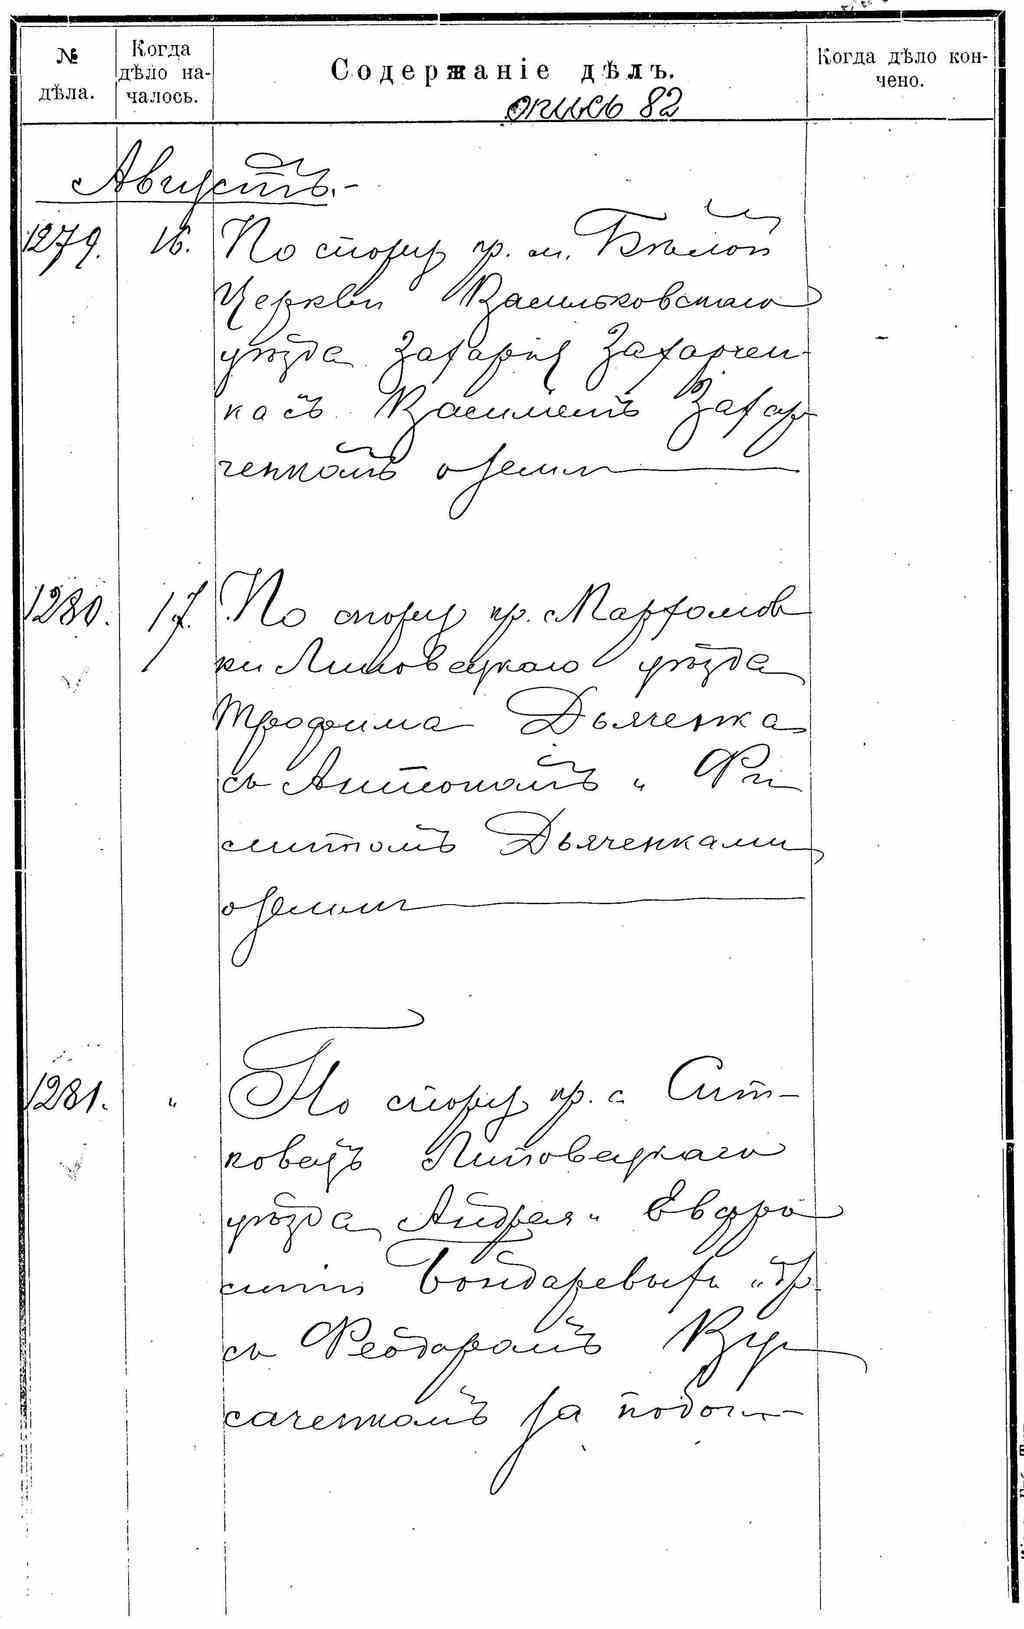 № дѣла.
Когда дѣло началось.
Содержаніе дѣлъ.
Когда дѣло кончено.
опись 82
Августъ.-
1279. 16. По спору кр. м. Бѣлой
Церкви Васильковскаго
уѣзда Захарія Захарчен-
ка съ Василіемъ Захар-
ченкомъ о земли
1280. 17. По спору кр. Марфомов
ки Липовецкаго уѣзда
Трофима Дьяченка
съ Антономъ и Фи
липомъ Дьяченками
о земли
1281. " По спору кр. с. Сит-
ковецъ Липовецкаго
уѣзда Андрея и Евфро
синіи Бондаревыхъ и др.
съ Феодоромъ Кур
саченкомъ за